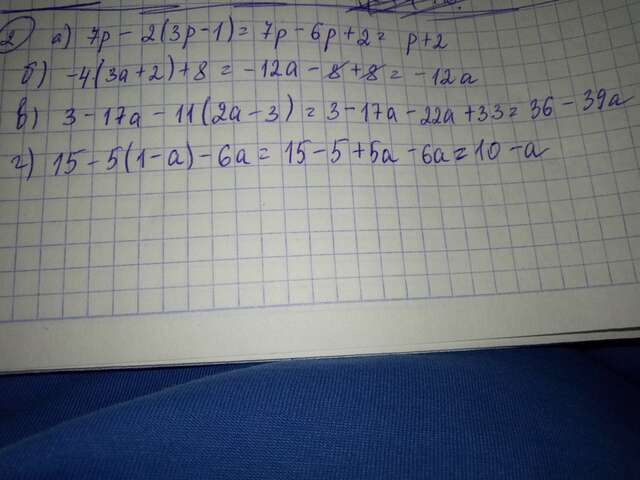 2 а) 7p - 2(3p-1) = 7p - 6p + 2 = p+2
б) -4(3a+2)+8 = -12a - 8 + 8 = -12a
в) 3-17a-11(2a-3) = 3-17a-22a+33 = 36-39a
г) 15-5(1-a)-6a = 15-5+5a-6a = 10-a